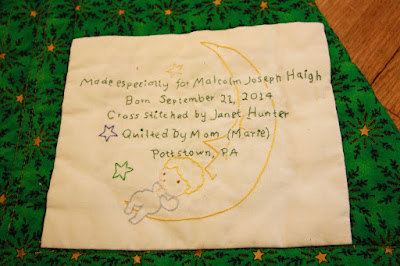 Made especially for Malcolm Joseph Haigh
Born September 22, 2014
Cross Stitched by Janet Hunter
Quilted By Mom (Marie)
Pottstown, PA